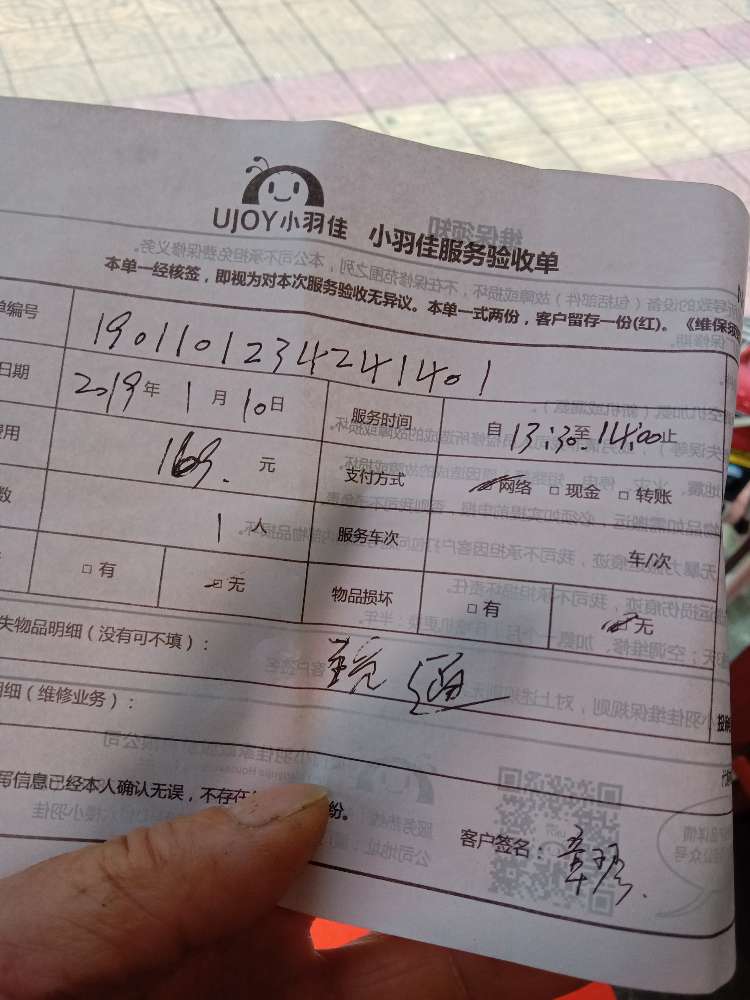 UJOY小羽佳 小羽佳服务验收单
本单一经核签，即视为对本次服务验收无异议。本单一式两份，客户留存一份(红)。《维保
单编号 1901101234241401
日期 2019年1月10日 服务时间 自13:30至14:00止
费用 169.元 支付方式 网络 □现金 □转账
数 1人 服务车次 车/次
□有 □无 物品损坏 □有 无
失物品明细（没有可不填）：
疏通
明细（维修业务）：
写信息已经本人确认无误，不存在 纷。
客户签名：